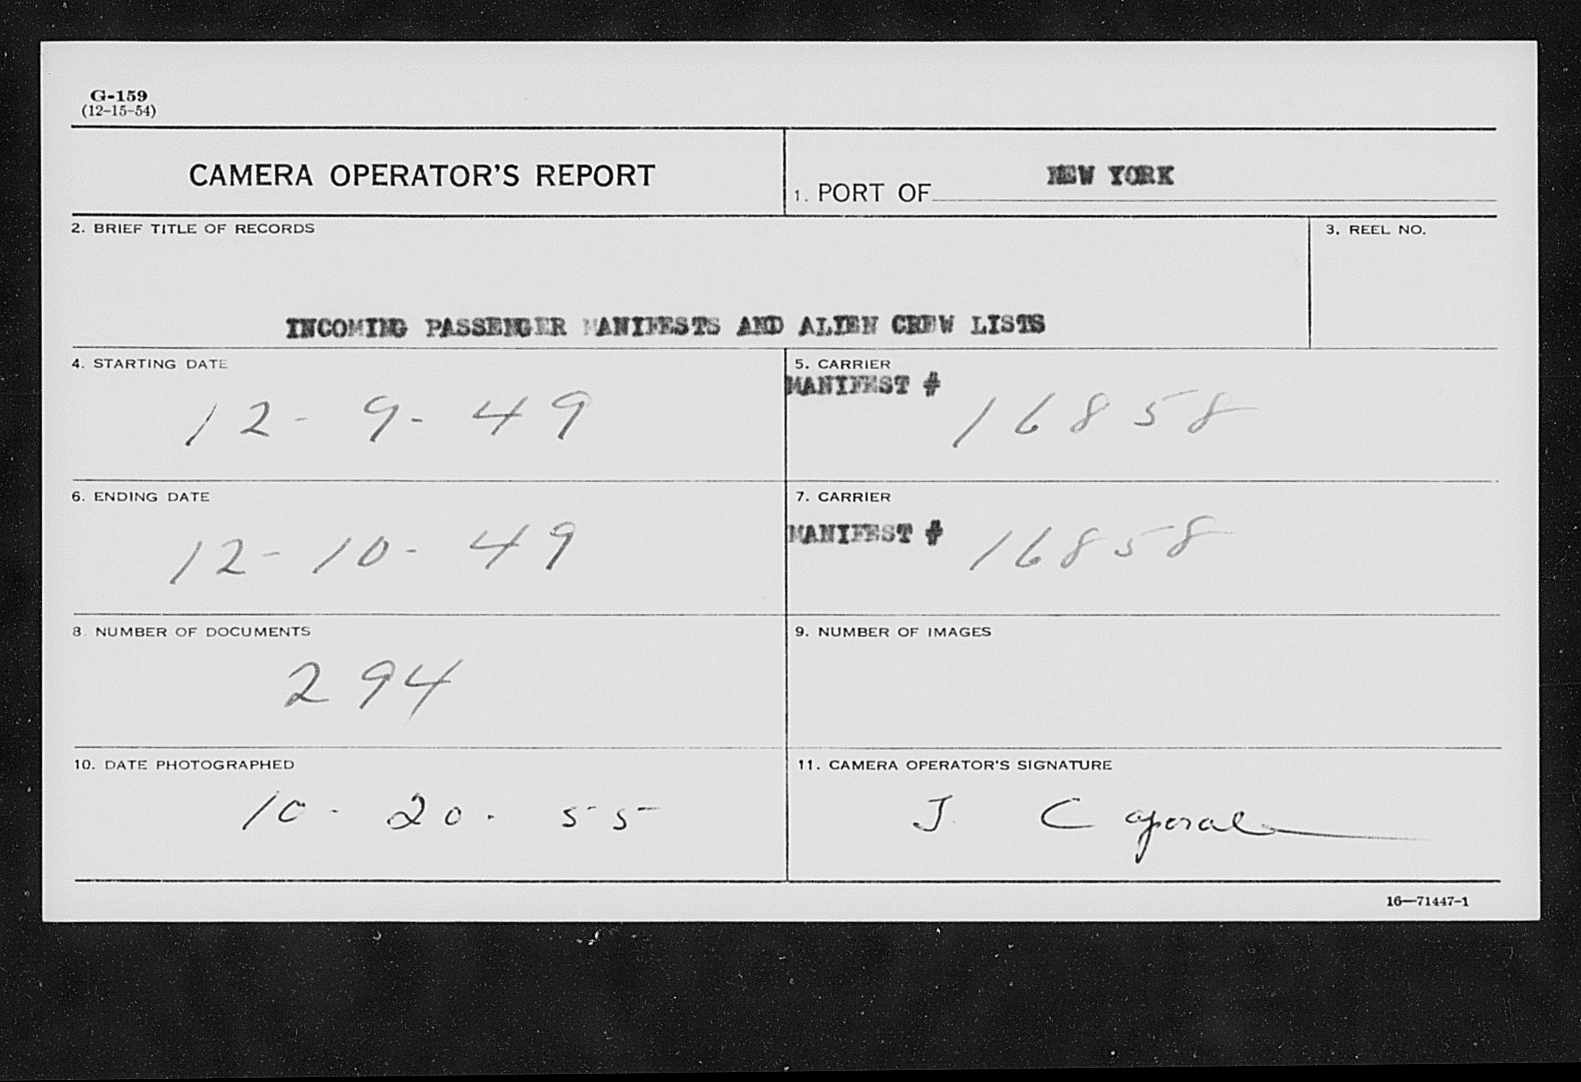 G-159
(12-15-54)
CAMERA OPERATOR'S REPORT
1. PORT OF NEW YORK
2. BRIEF TITLE OF RECORDS
3. REEL NO.
INCOMING PASSENGER MANIFESTS AND ALIEN CREW LISTS
4. STARTING DATE
12-9-49
5. CARRIER
MANIFEST # 16858
6. ENDING DATE
12-10-49
7. CARRIER
MANIFEST # 16858
8. NUMBER OF DOCUMENTS
294
9. NUMBER OF IMAGES
10. DATE PHOTOGRAPHED
10-20-55
11. CAMERA OPERATOR'S SIGNATURE
J. Caporal
16—71447-1